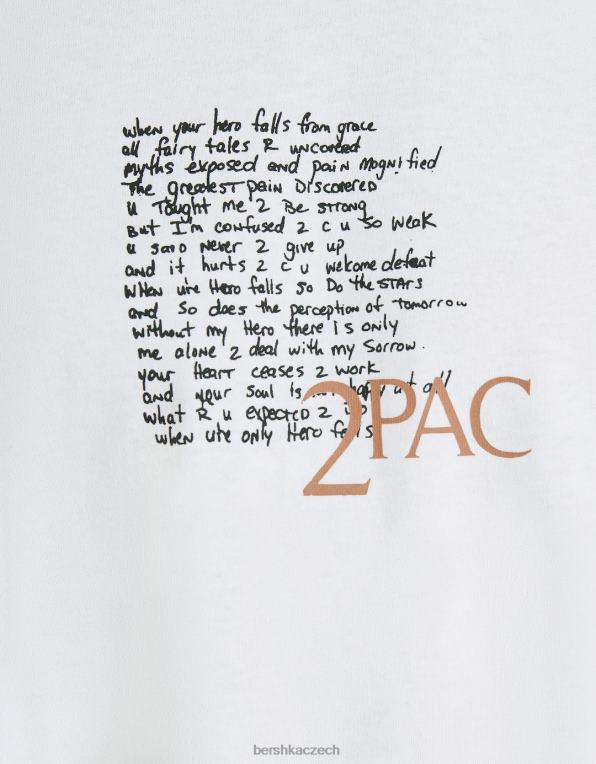 when your hero falls from grace
all fairy tales R uncovered
myths exposed and pain magnified
The greatest pain Discovered
u Taught me 2 Be strong
But I'm confused 2 c u so weak
u said Never 2 give up
and it hurts 2 c u welcome defeat
When ure Hero falls so Do the STARS
and So does the perception of tomorrow
without my Hero there is only
me alone 2 deal with my Sorrow.
your Heart ceases 2 work
and your soul is happy at all
what R u expected 2 do
when ure only Hero falls
2PAC
bershkaczech